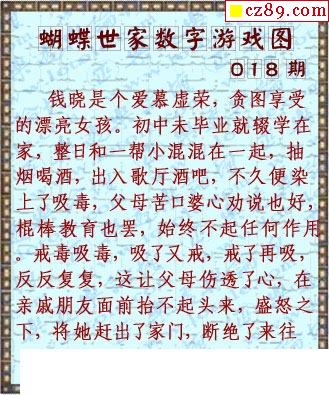 cz89.com
蝴蝶世家数字游戏图
018期
钱晓是个爱慕虚荣，贪图享受
的漂亮女孩。初中未毕业就辍学在
家，整日和一帮小混混在一起，抽
烟喝酒，出入歌厅酒吧，不久便染
上了吸毒，父母苦口婆心劝说也好，
棍棒教育也罢，始终不起任何作用
。戒毒吸毒，吸了又戒，戒了再吸，
反反复复，这让父母伤透了心，在
亲戚朋友面前抬不起头来，盛怒之
下，将她赶出了家门，断绝了来往